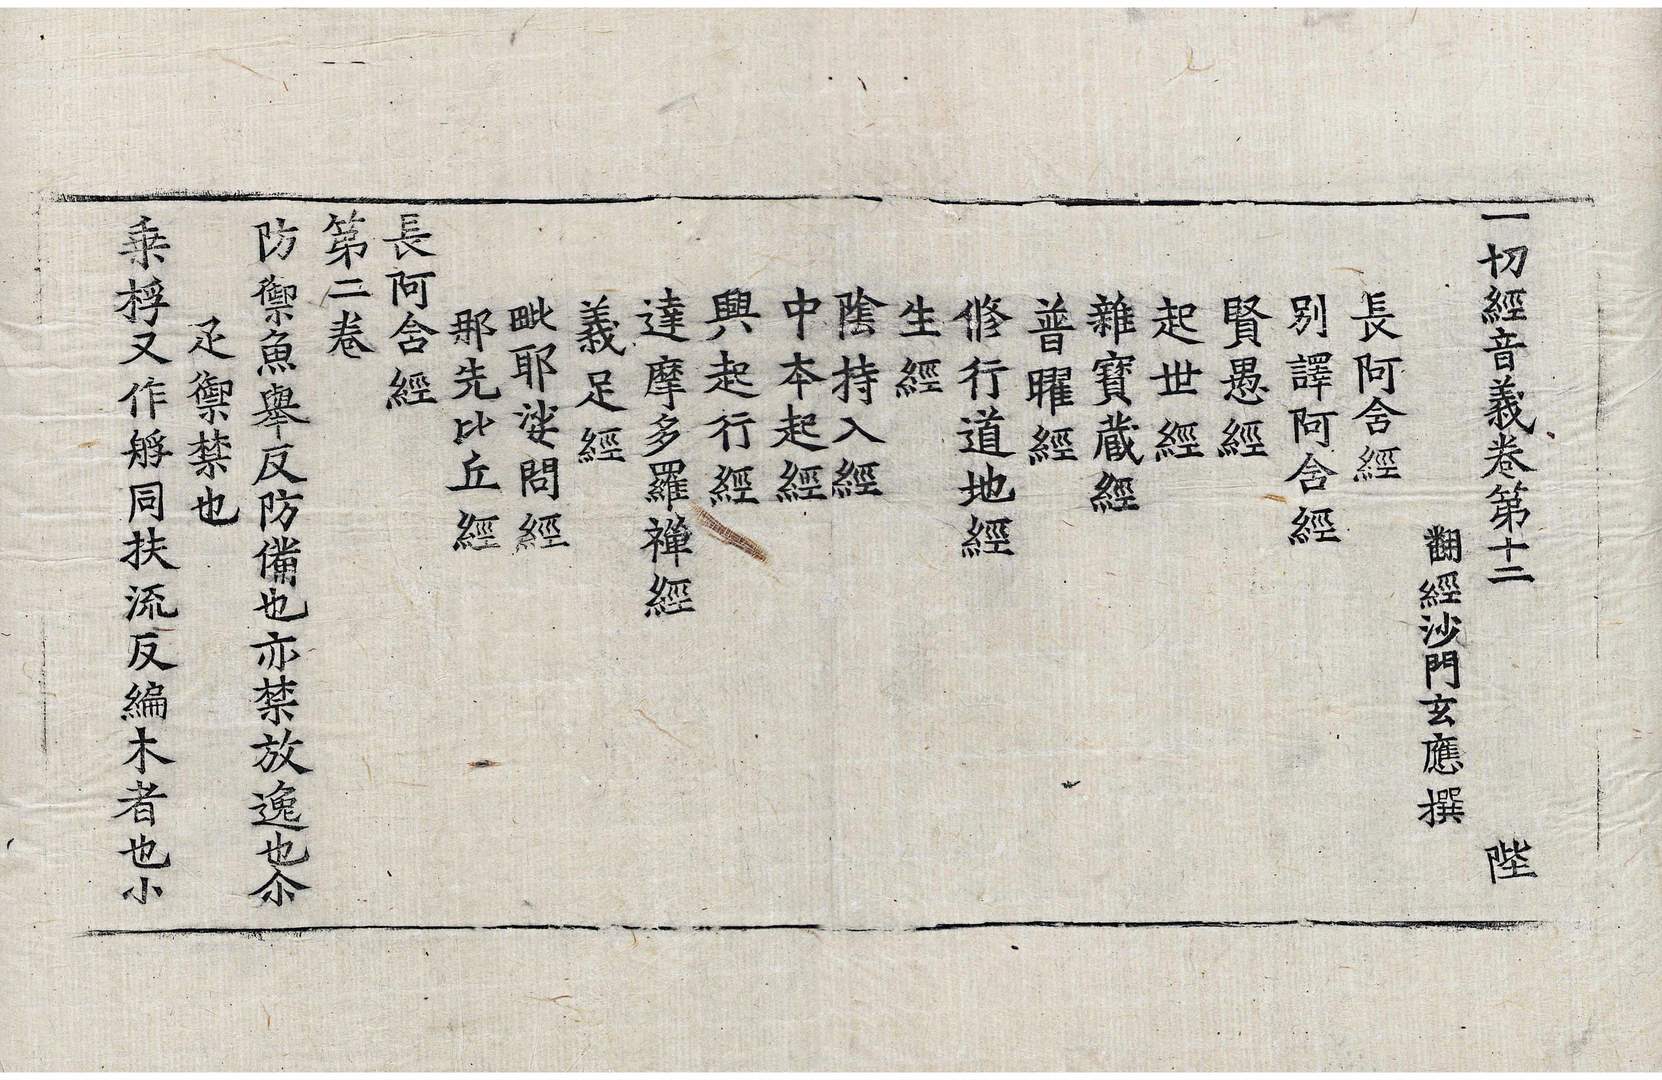 一切經音義卷第十二 陛
翻經沙門玄應撰
長阿含經
別譯阿含經
賢愚經
起世經
雜寶蔵經
普曜經
修行道地經
生經
陰持入經
中本起經
興起行經
達摩多羅禅經
義足經
毗耶娑問經
那先比丘經
長阿含經
第二卷
防禦魚舉反防備也亦禁放逸也尒
疋禦禁也
乗桴又作艀同扶流反編木者也小